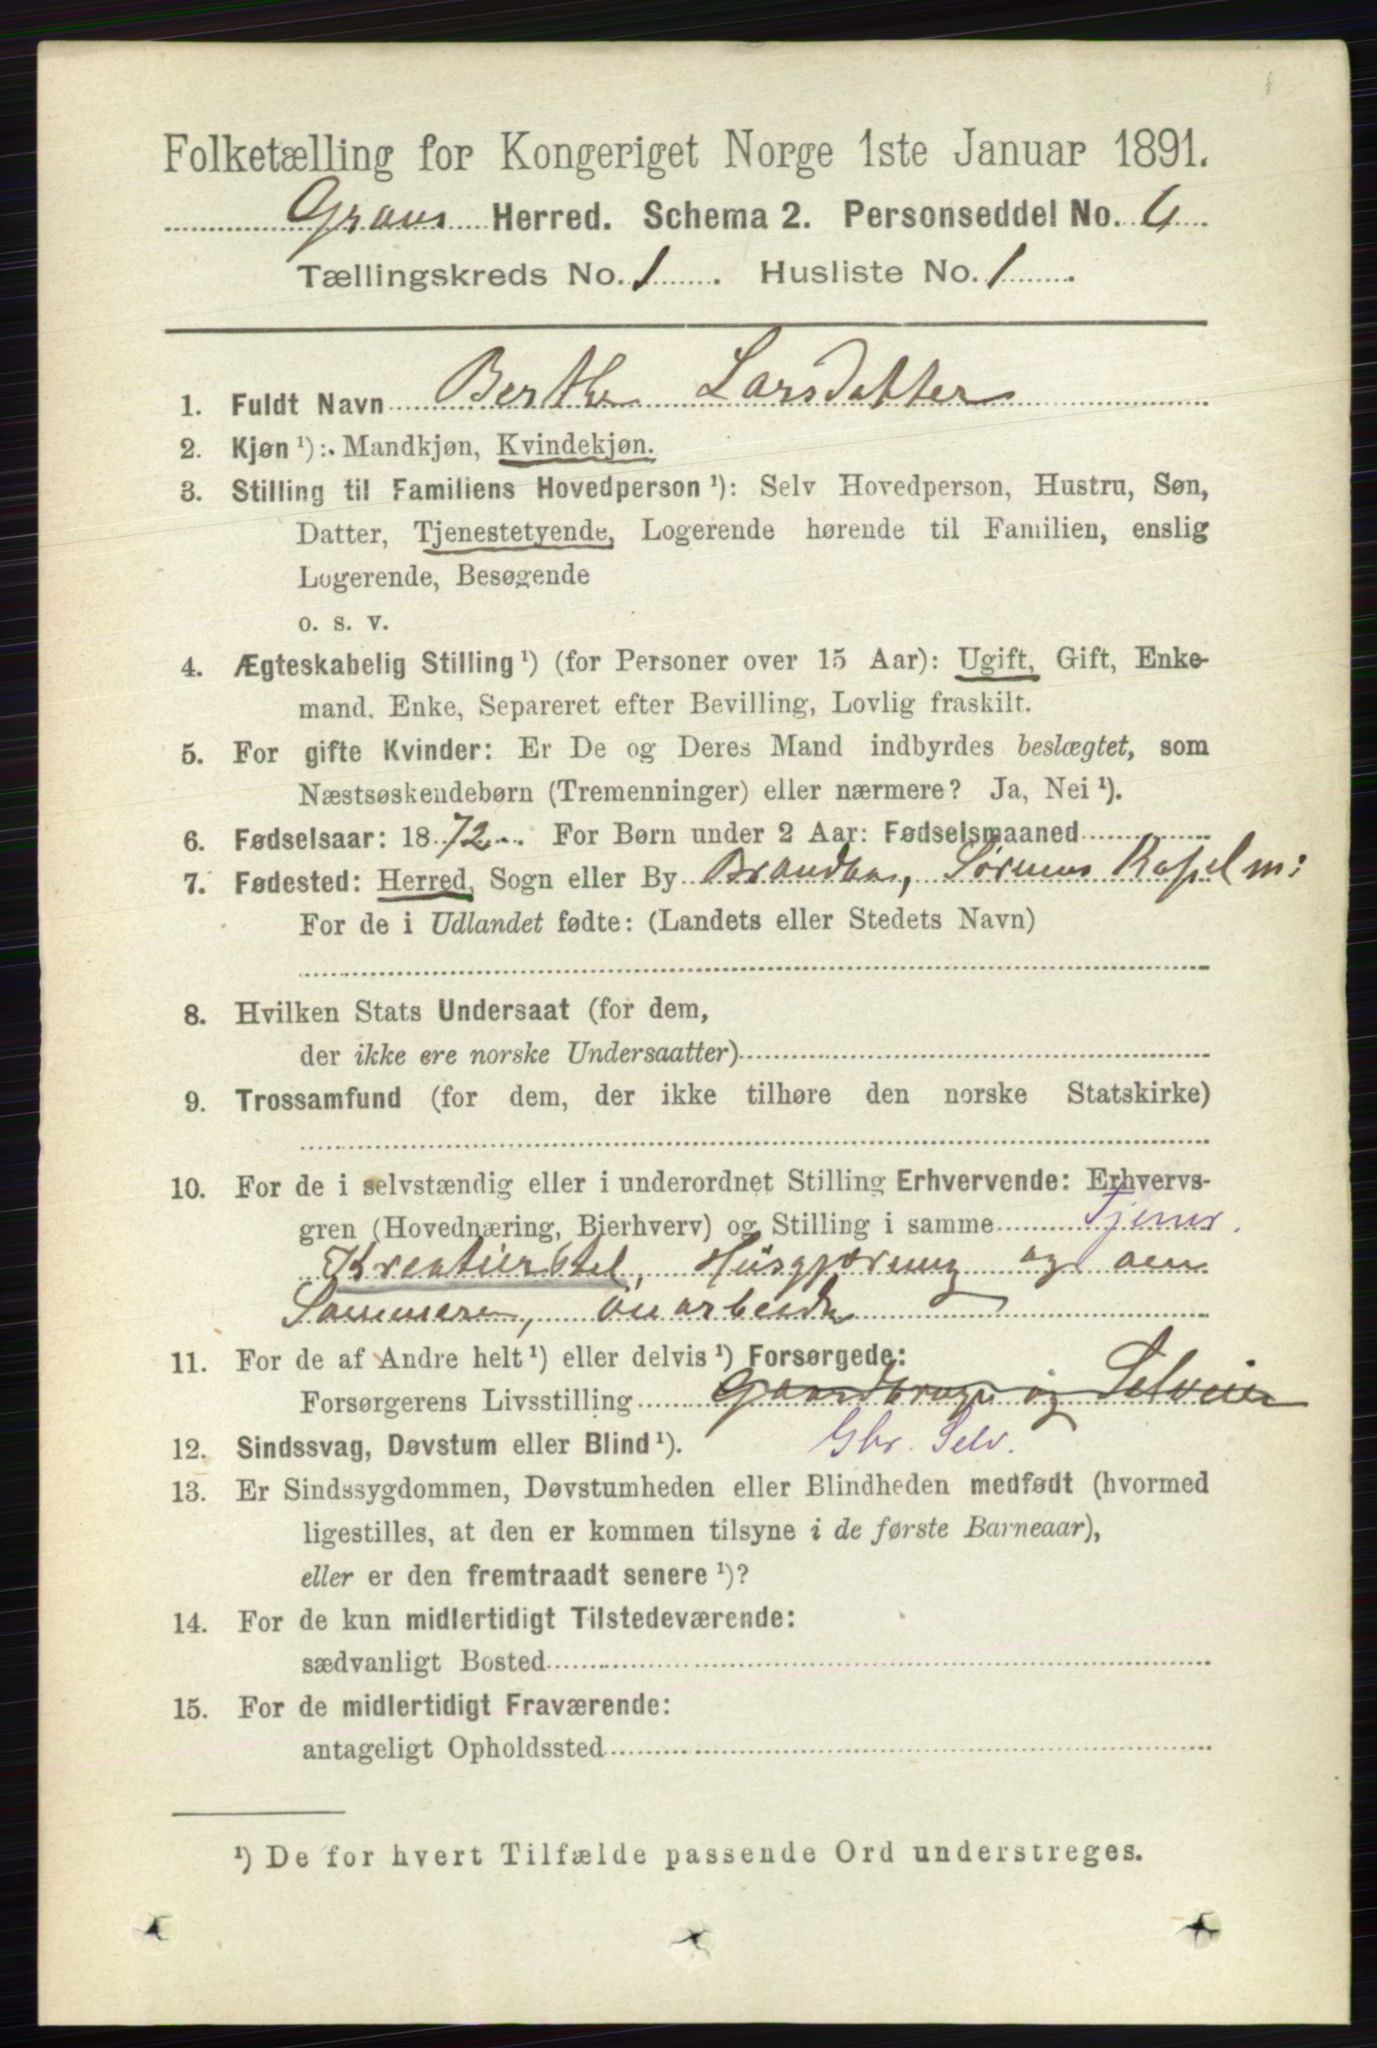 Folketælling for Kongeriget Norge 1ste Januar 1891.
Grans Herred. Schema 2. Personseddel No. 6
Tællingskreds No. 1. Husliste No. 1.
1. Fuldt Navn Berthe Larsdatter
2. Kjøn ¹): Mandkjøn, Kvindekjøn.
3. Stilling til Familiens Hovedperson ¹): Selv Hovedperson, Hustru, Søn,
Datter, Tjenestetyende, Logerende hørende til Familien, enslig
Logerende, Besøgende
o. s. v.
4. Ægteskabelig Stilling ¹) (for Personer over 15 Aar): Ugift, Gift, Enke-
mand. Enke, Separeret efter Bevilling, Lovlig fraskilt.
5. For gifte Kvinder: Er De og Deres Mand indbyrdes beslægtet, som
Næstsøskendebørn (Tremenninger) eller nærmere? Ja, Nei ¹).
6. Fødselsaar: 1872. For Børn under 2 Aar: Fødselsmaaned
7. Fødested: Herred, Sogn eller By Brandbu,
For de i Udlandet fødte: (Landets eller Stedets Navn)
8. Hvilken Stats Undersaat (for dem,
der ikke ere norske Undersaatter)
9. Trossamfund (for dem, der ikke tilhøre den norske Statskirke)
10. For de i selvstændig eller i underordnet Stilling Erhvervende: Erhvervs-
gren (Hovednæring, Bierhverv) og Stilling i samme Tjener.
Kreaturstel, Husgjerning og om
Sommeren, Onarbeide
11. For de af Andre helt ¹) eller delvis ¹) Forsørgede:
Forsørgerens Livsstilling Gaardbruger og Selveier
12. Sindssvag, Døvstum eller Blind ¹). Gbr. Selv.
13. Er Sindssygdommen, Døvstumheden eller Blindheden medfødt (hvormed
ligestilles, at den er kommen tilsyne i de første Barneaar),
eller er den fremtraadt senere ¹)?
14. For de kun midlertidigt Tilstedeværende:
sædvanligt Bosted
15. For de midlertidigt Fraværende:
antageligt Opholdssted
¹) De for hvert Tilfælde passende Ord understreges.